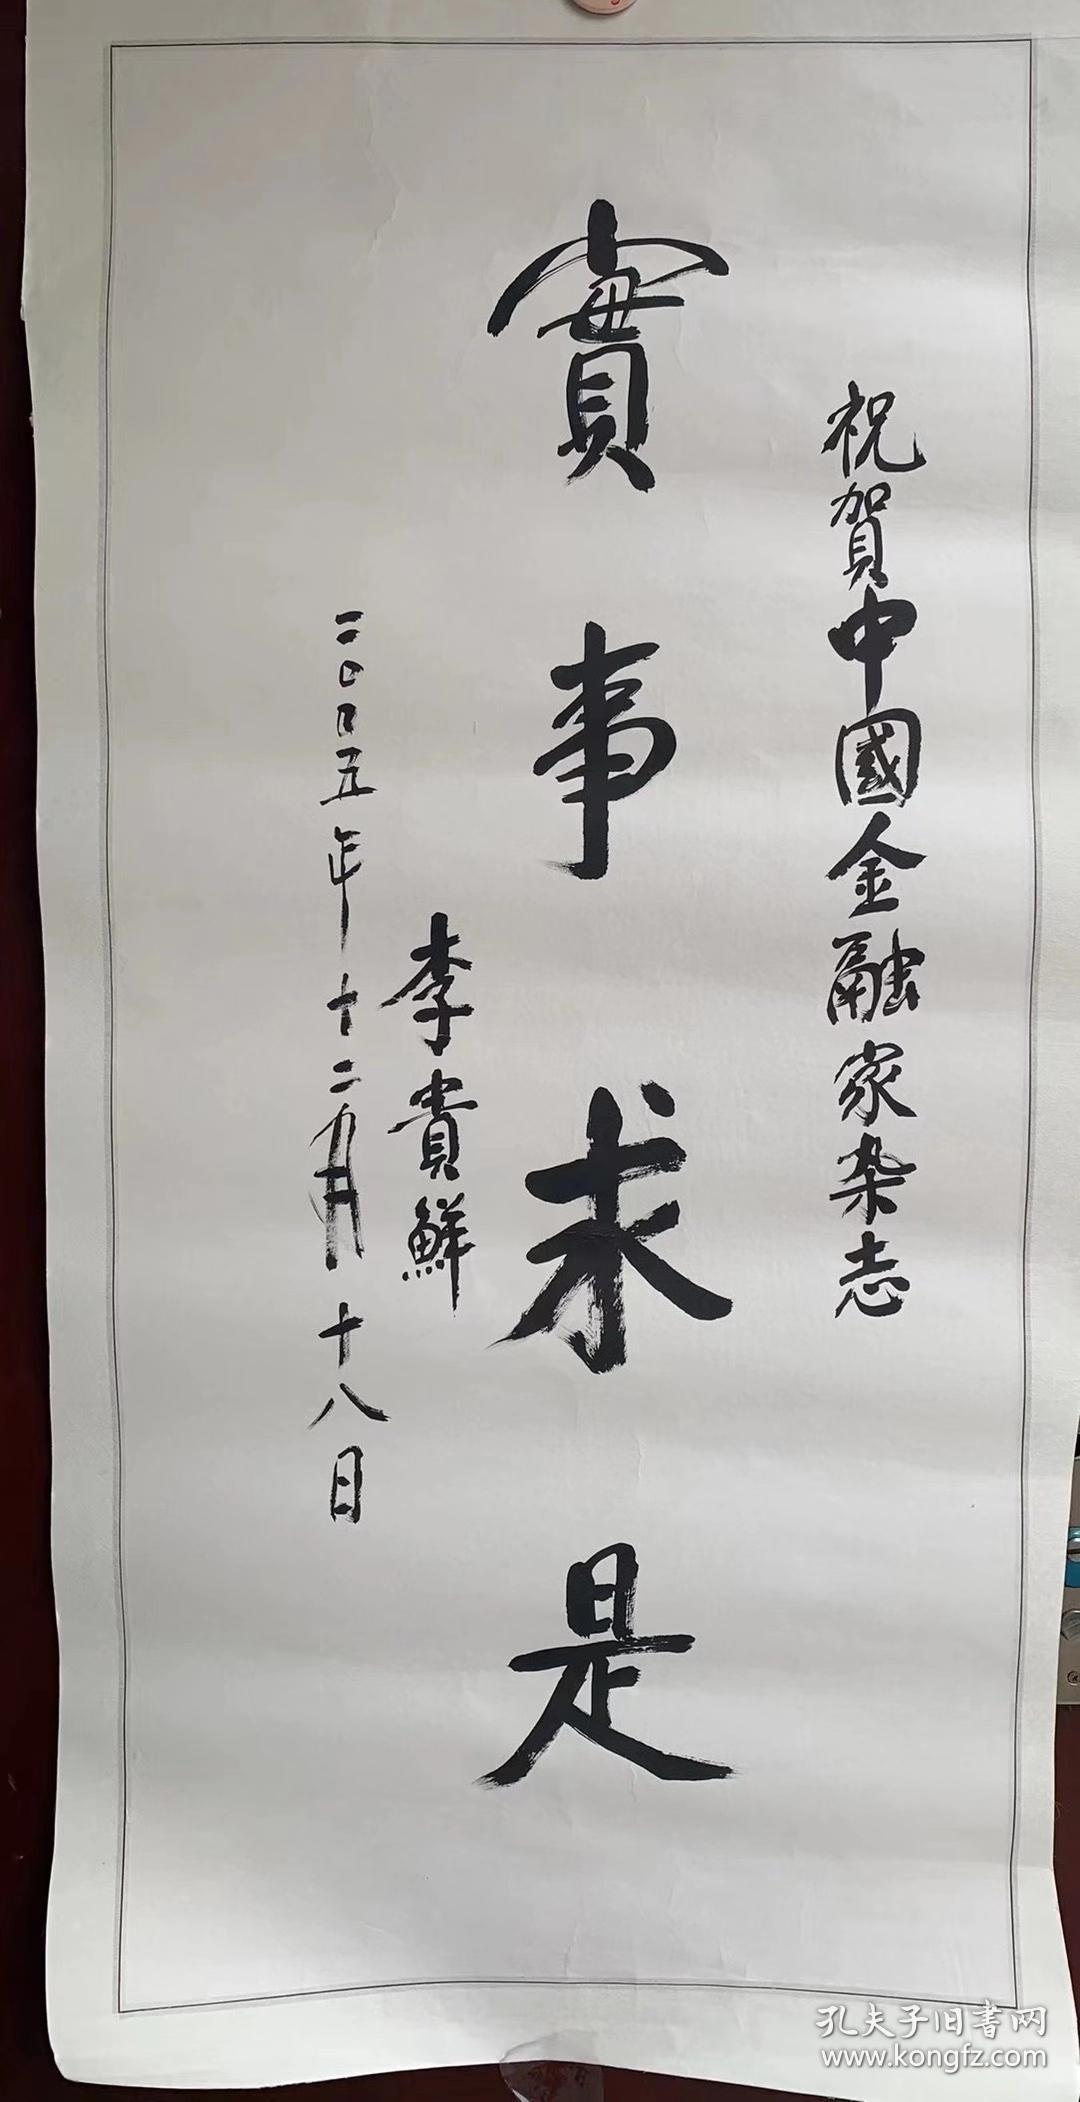 祝賀中國金融家杂志
實事求是
李貴鮮
二〇〇五年十二月十八日
孔夫子旧書网
www.kongfz.com